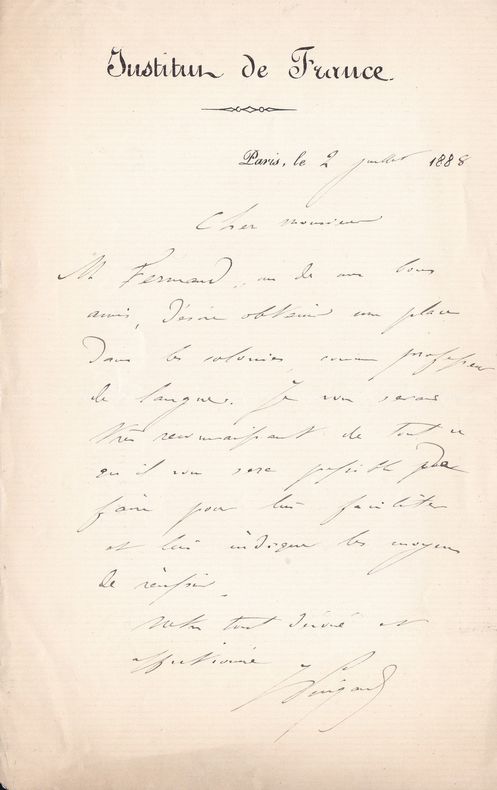 Institut de France.
Paris, le 2 juillet 1888
Cher monsieur
M. Fernand, un de mes bons
amis, désire obtenir une place
dans les colonies comme professeur
de langues. Je vous serais
très reconnaissant de tout ce
qu'il vous sera possible de
faire pour lui faciliter
et lui indiquer les moyens
de réussir.
Votre tout dévoué et
affectionné